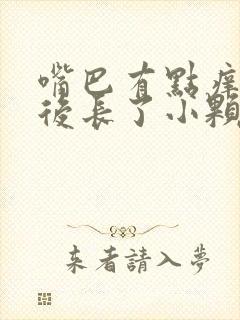 嘴巴有點痒
後長了小顆
来者請入夢